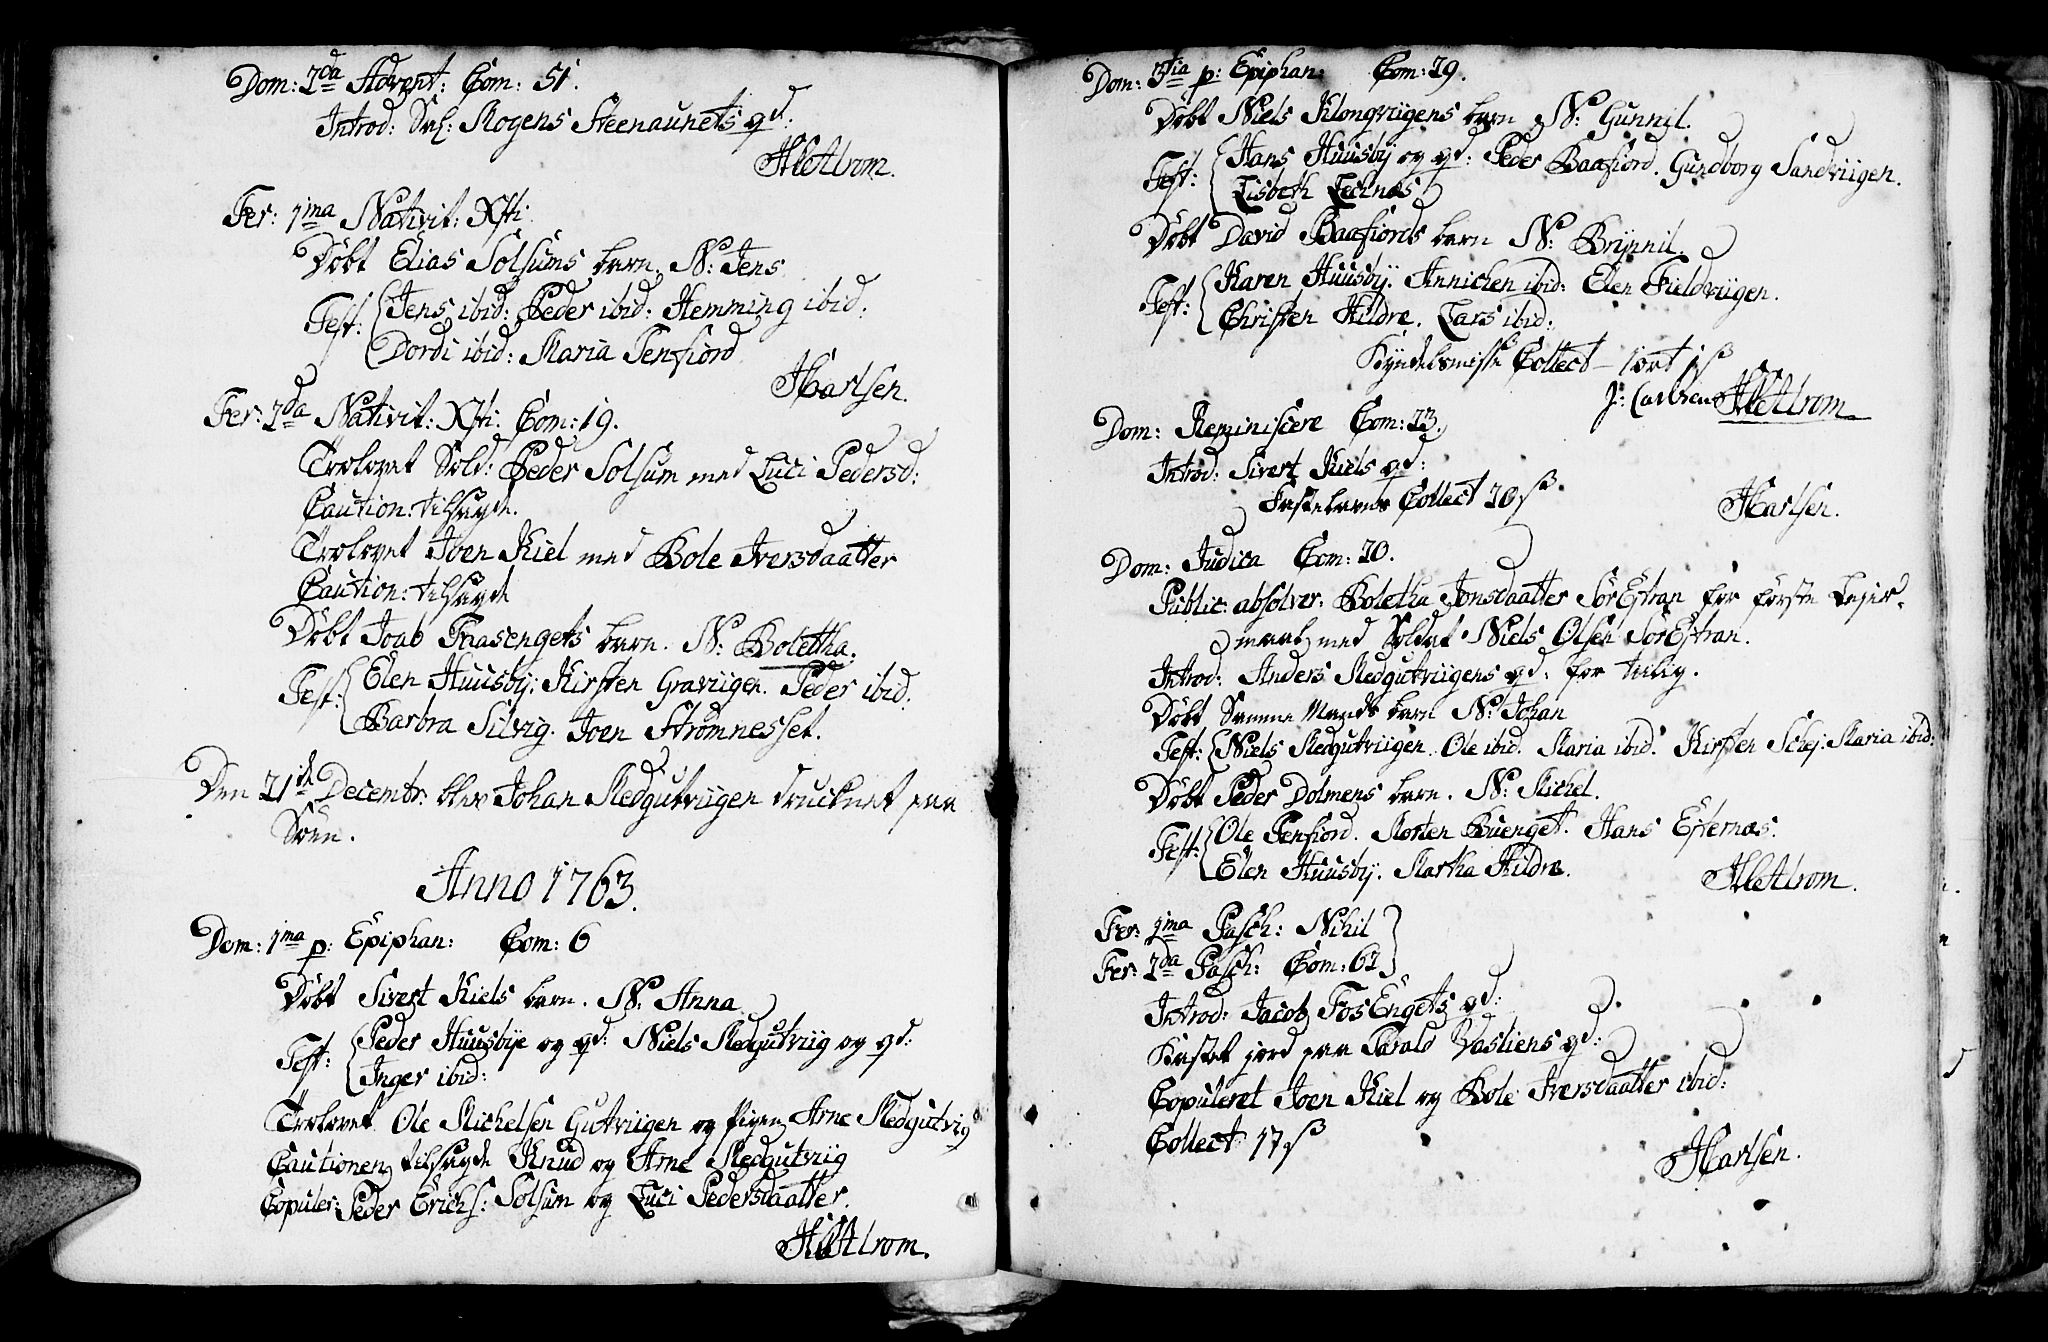 Dom: 2da Advent: Com: 51.
Introd: Sal: Mogens Steenaunets qd:
Fer: 1ma Nativit: Xsti
Döbt Elias Solsums barn. N: Jens
Test: Jens ibid: Peder ibid: Hemming ibid:
Dordi ibid: Maria Tenfiord
JCarlsen.
Fer: 2da Nativit: Xsti. Com: 19.
Trolovet Sold: Peder Solsum med Luci Pedersd:
Caution: tilsagde.
Trolovet Joen Kiel med Bole Iversdaatter
Caution: tilsagde
Döbt Joab Fraasengets barn. N: Boletha.
Test: Elen Huusbÿ: Kirsten Graviigen. Peder ibid:
Barbra Silvig. Joen Strömnesset.
Den 21de Decembr: blev Johan Medgutviigen drucknet paa
Söen.
Anno 1763.
Dom: 1ma p: Epiphan: Com: 6
Döbt Sivert Kiels barn. N: Anna
Test: Peder Huusbÿe og qd: Niels Medgutviig og qd:
Inger ibid:
Trolovet Ole Michelsen Gutviigen og Pigen Arne Medgutvig
Cautionen tilsagde Knud og Arne Medgutviig
Copuler: Peder Erichs: Solsum og Luci Pedersdaatter.
Dom: 3tia p: Epiphan: Com: 29.
Döbt Niels Klongviigens barn N: Gunnil.
Test: Hans Huusbÿ og qd: Peder Baafiord. Gundborg Sandviigen.
Lisbeth Lechnæs
Döbt David Baafiords barn N: Brÿnnil.
Test: Karen Huusbÿ. Annichen ibid: Elen Fieldviigen.
Christen Hildre. Lars ibid:
Kyndelsmisse Collect - 1 ort
J: Carlsen
Dom: Reminiscere Com: 23.
Introd: Sivert Kiels qd:
Fastelavns Collect 20 s
JCarlsen.
Dom: Judica Com: 20.
Public: absolver: Boletha Jonsdaatter SörEstran for förste Lejer-
maal med Soldat Niels Olsen SörEstran.
Introd: Anders Medgutviigens qd: for tilig.
Döbt Samme Mands barn N: Johan
Test: Niels Medgutviigen. Ole ibid. Maria ibid: Kirsten Schej: Maria ibid:
Döbt Peder Dolmens barn. N: Michel.
Test: Ole Tenfiord. Morten Buenget. Hans Esternæs.
Elen Huusbÿ. Martha Hildre.
Fer: 1ma Pasch: Nihil
Fer: 2da Pasch: Com: 62
Introd: Jacob FosEngets qd:
Kastet jord paa Harald Vastiens qd:
Copuleret Joen Kiel og Bole Iversdaatter ibid:
Collect 17 s
JCarlsen.